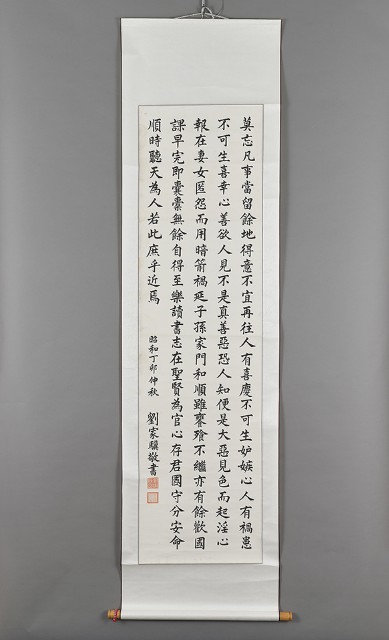 莫忘凡事當留餘地得意不宜再往人有喜慶不可生妒嫉心人有禍患
不可生喜幸心善欲人見不是真善惡恐人知便是大惡見色而起淫心
報在妻女匿怨而用暗箭禍延子孫家門和順雖饔飧不繼亦有餘歡國
課早完即囊橐無餘自得至樂讀書志在聖賢為官心存君國守分安命
順時聽天為人若此庶乎近焉
昭和丁卯仲秋
劉家驥敬書